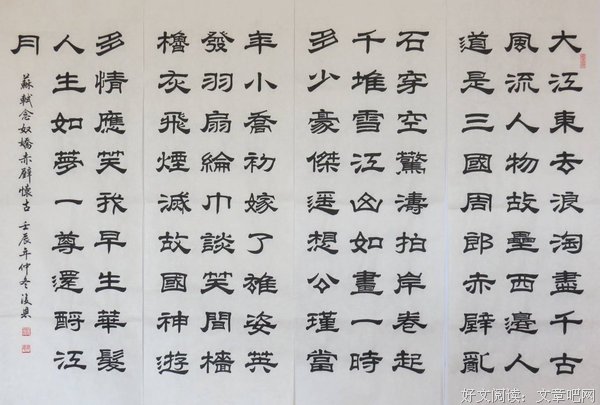 大江東去浪淘盡千古
風流人物故壘西邊人
道是三國周郎赤壁亂
石穿空驚濤拍岸卷起
千堆雪江山如畫一時
多少豪傑遥想公瑾當
年小喬初嫁了雄姿英
發羽扇綸巾談笑間檣
櫓灰飛煙滅故國神遊
多情應笑我早生華髮
人生如夢一尊還酹江
月
蘇軾念奴嬌赤壁懷古 壬辰年仲冬
好文阅读：文章吧网